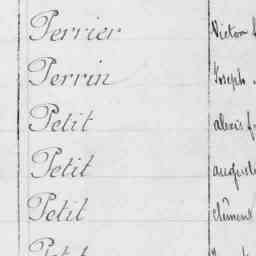 Perrier Victon
Perrin Joseph
Petit alexis f
Petit augusti
Petit clément
Petit